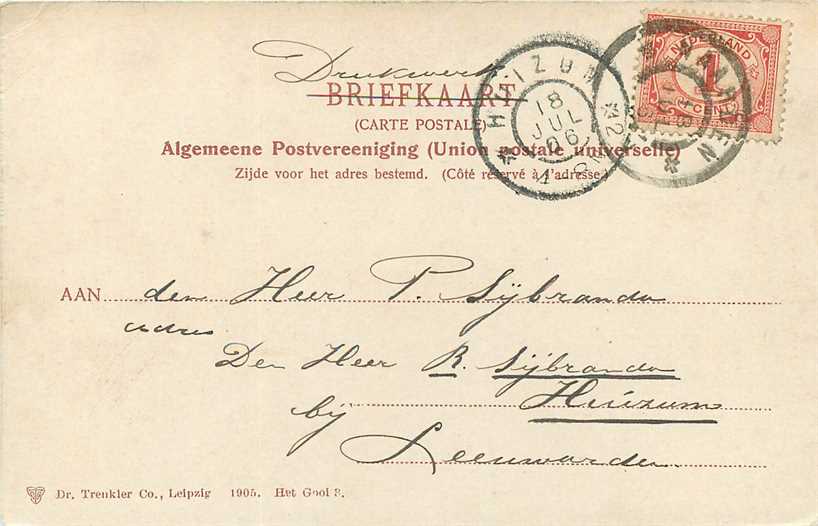 Drukwerk
BRIEFKAART
(CARTE POSTALE)
Algemeene Postvereeniging (Union postale universelle)
Zijde voor het adres bestemd. (Côté réservé à l'adresse)
NEDERLAND
1
CENT
HUIZUM
18
JUL
06
AAN den Heer P. Sybranda
adres
Den Heer R. Sybranda
Huizum
bij
Leeuwarden
Dr. Trenkler Co., Leipzig 1905. Het Gooi 8.